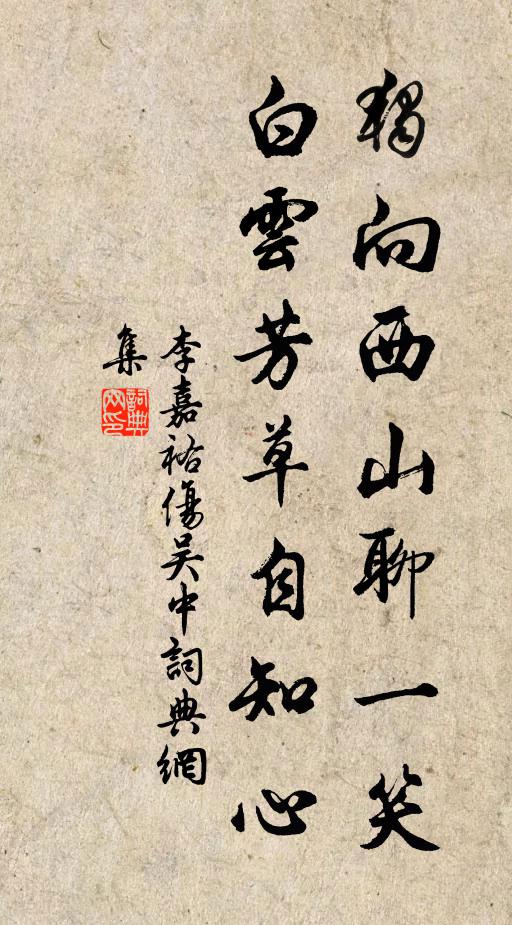 獨向西山聊一笑
白雲芳草自知心
李嘉祐傷吴中詞典網
集
詞典
网印